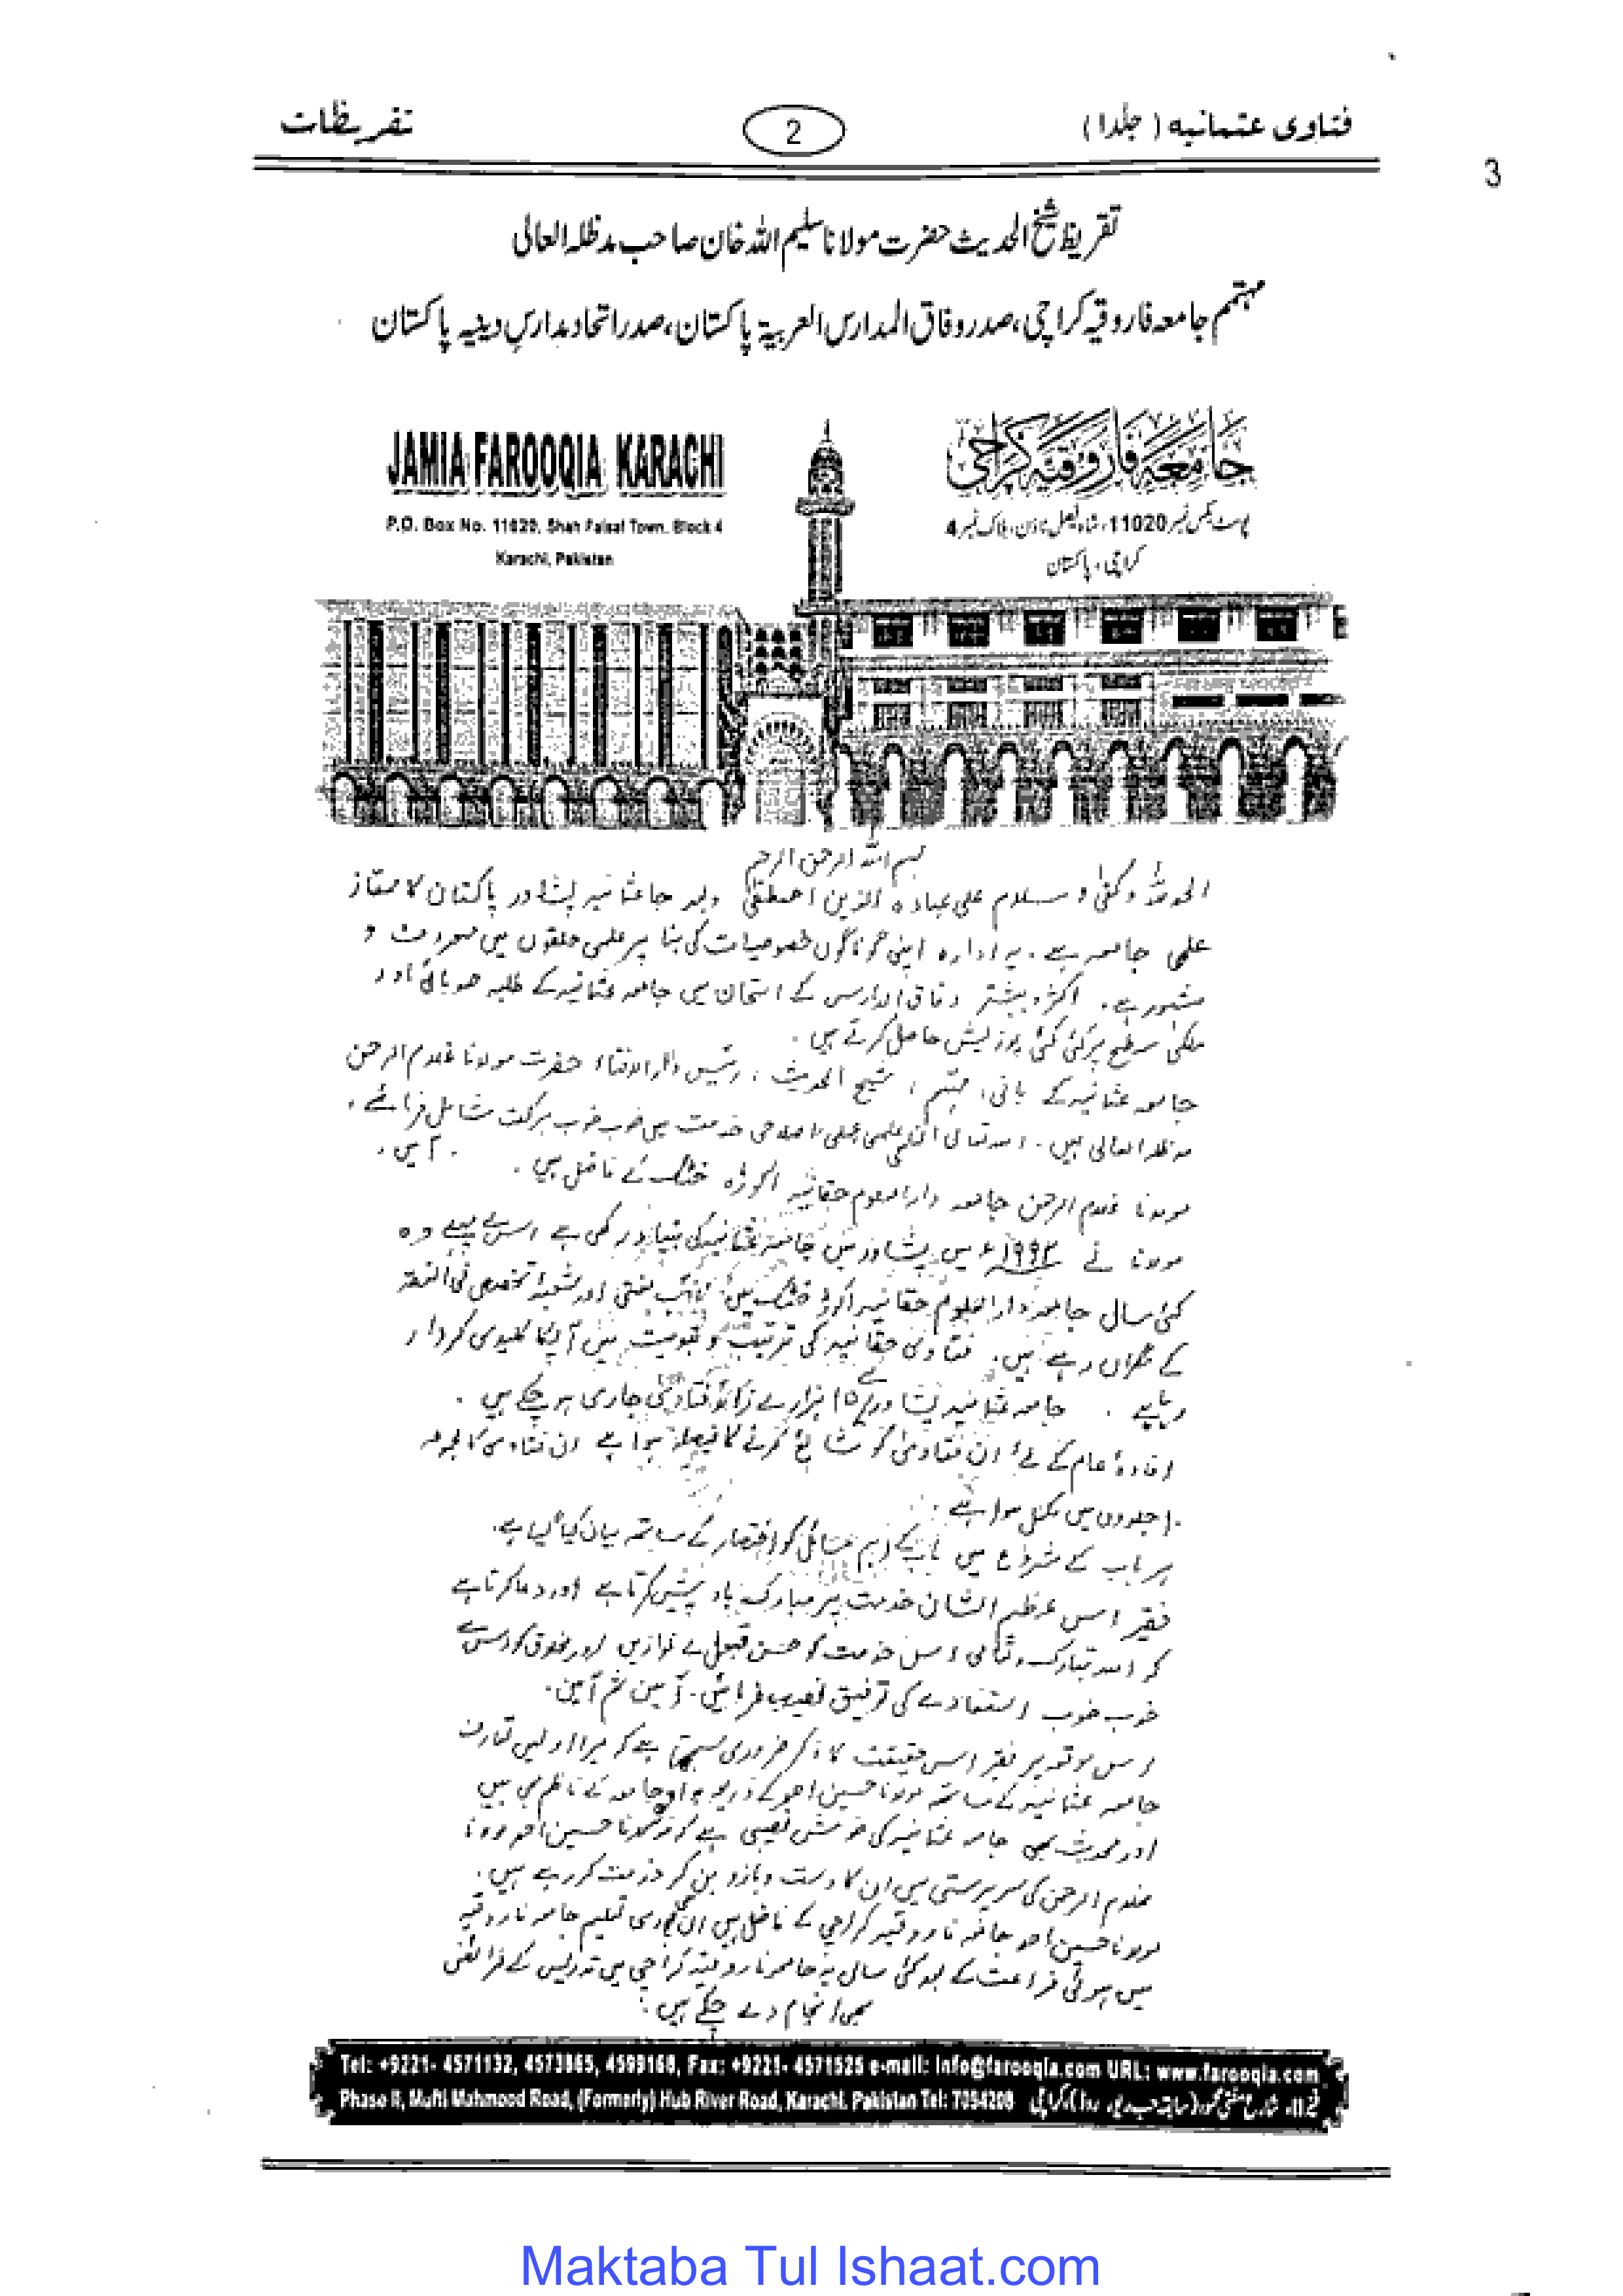 فتاوی عثمانیہ (جلد۱)
2
تقریظات
3
تقریظ شیخ الحدیث حضرت مولانا سلیم اللہ خان صاحب مدظلہ العالی
مہتمم جامعہ فاروقیہ کراچی، صدر وفاق المدارس العربیۃ پاکستان، صدر اتحاد مدارسِ دینیہ پاکستان
جامعہ فاروقیہ کراچی
JAMIA FAROOQIA KARACHI
پوسٹ بکس نمبر 11020، شاہ فیصل ٹاؤن، بلاک نمبر 4
کراچی، پاکستان
P.O. Box No. 11020, Shah Faisal Town, Block 4
Karachi, Pakistan
بسم اللہ الرحمن الرحیم
الحمدللہ وکفیٰ و سلام علی عبادہ الذین اصطفیٰ وبعد جامعہ عثمانیہ پشاور پاکستان کا ممتاز
علمی جامعہ ہے۔ یہ ادارہ اپنی گوناگوں خصوصیات کی بنا پر علمی حلقوں میں معروف و
مشہور ہے۔ اکثر و بیشتر وفاق المدارس کے امتحان میں جامعہ عثمانیہ کے طلبہ صوبائی اور
ملکی سطح پر کئی کئی پوزیشن حاصل کرتے ہیں۔
جامعہ عثمانیہ کے بانی، مہتمم، شیخ الحدیث، رئیس دارالافتاء حضرت مولانا غلام الرحمن
مدظلہ العالی ہیں۔ اللہ تعالیٰ انکی علمی عملی اصلاحی خدمت میں خوب خوب برکت شامل فرمائے،
آمین۔
مولانا غلام الرحمن جامعہ دارالعلوم حقانیہ اکوڑہ خٹک کے فاضل ہیں۔
مولانا نے ۱۹۹۲ء میں پشاور میں جامعہ عثمانیہ کی بنیاد رکھی ہے اس سے پہلے وہ
کئی سال جامعہ دارالعلوم حقانیہ اکوڑہ خٹک میں نائب مفتی اور شعبہ تخصص فی الفقہ
کے نگران رہے ہیں۔ فتاویٰ حقانیہ کی ترتیب و تبویب میں آپکا کلیدی کردار
رہا ہے۔ جامعہ عثمانیہ پشاور سے ۱۵ ہزار سے زائد فتاویٰ جاری ہو چکے ہیں۔
افادۂ عام کے لئے ان فتاویٰ کو شائع کرنے کا فیصلہ ہوا ہے ان فتاویٰ کا مجموعہ
۱۰ جلدوں میں مکمل ہوا ہے۔
ہر باب کے شروع میں باب کے اہم مسائل کو اختصار کے ساتھ بیان کیا گیا ہے۔
فقیر اس عظیم الشان خدمت پر مبارک باد پیش کرتا ہے اور دعا کرتا ہے
کہ اللہ تبارک وتعالیٰ اس خدمت کو حسن قبول سے نوازیں اور مخلوق کو اس سے
خوب خوب استفادے کی توفیق نصیب فرمائیں۔ آمین ثم آمین۔
اس موقعہ پر فقیر اس حقیقت کا ذکر ضروری سمجھتا ہے کہ میرا اولین تعارف
جامعہ عثمانیہ کے ساتھ مولانا حسین احمد کے ذریعہ ہوا وہ جامعہ کے ناظم بھی ہیں
اور محدث بھی جامعہ عثمانیہ کی خوش نصیبی ہے کہ مولانا حسین احمد مولانا
غلام الرحمن کی سرپرستی میں ان کا دست و بازو بن کر خدمت کر رہے ہیں۔
مولانا حسین احمد جامعہ فاروقیہ کراچی کے فاضل ہیں ان کی تعلیم جامعہ فاروقیہ
میں ہوئی فراغت کے بعد کئی سال یہ جامعہ فاروقیہ کراچی میں تدریس کے فرائض
بھی انجام دے چکے ہیں۔
Tel: +9221- 4571132, 4573865, 4599168, Fax: +9221- 4571525 e-mail: info@farooqia.com URL: www.farooqia.com
Phase II, Mufti Mahmood Road, (Formerly) Hub River Road, Karachi, Pakistan Tel: 7094208
Maktaba Tul Ishaat.com